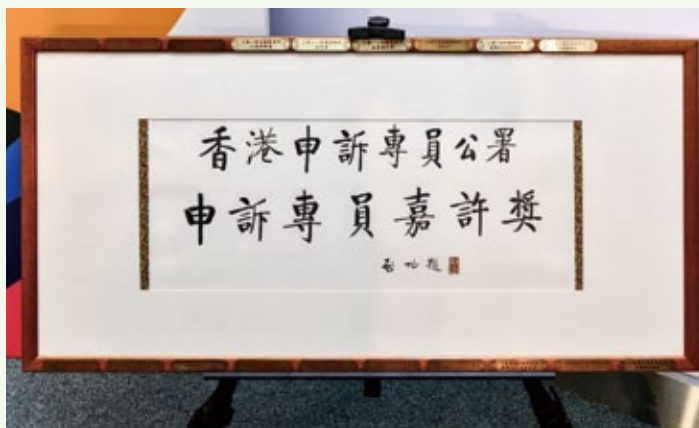 香港申訴專員公署
申訴專員嘉許獎
啟功題